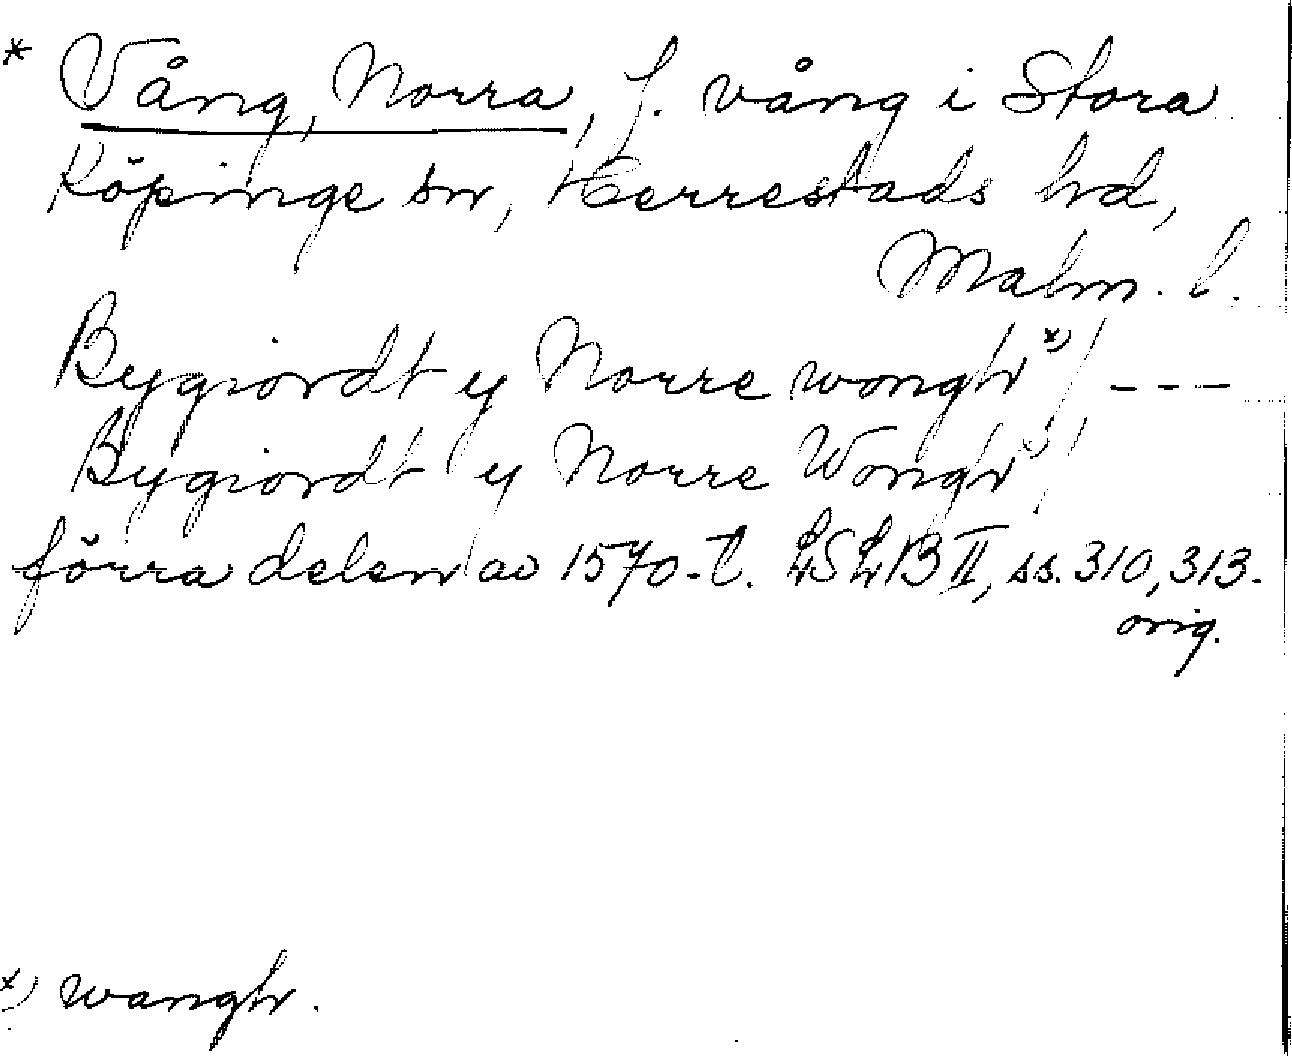 * Vång, Norra, f. vång i Stora
Köpinge sn, Herrestads hd,
Malm. l.
Bygiordt y Norre wongh x) /, ---
Bygiordt y Norre Wongh x) /,
förra delen av 1570-t. LSLB II, ss. 310, 313.
orig.
x) wangh.